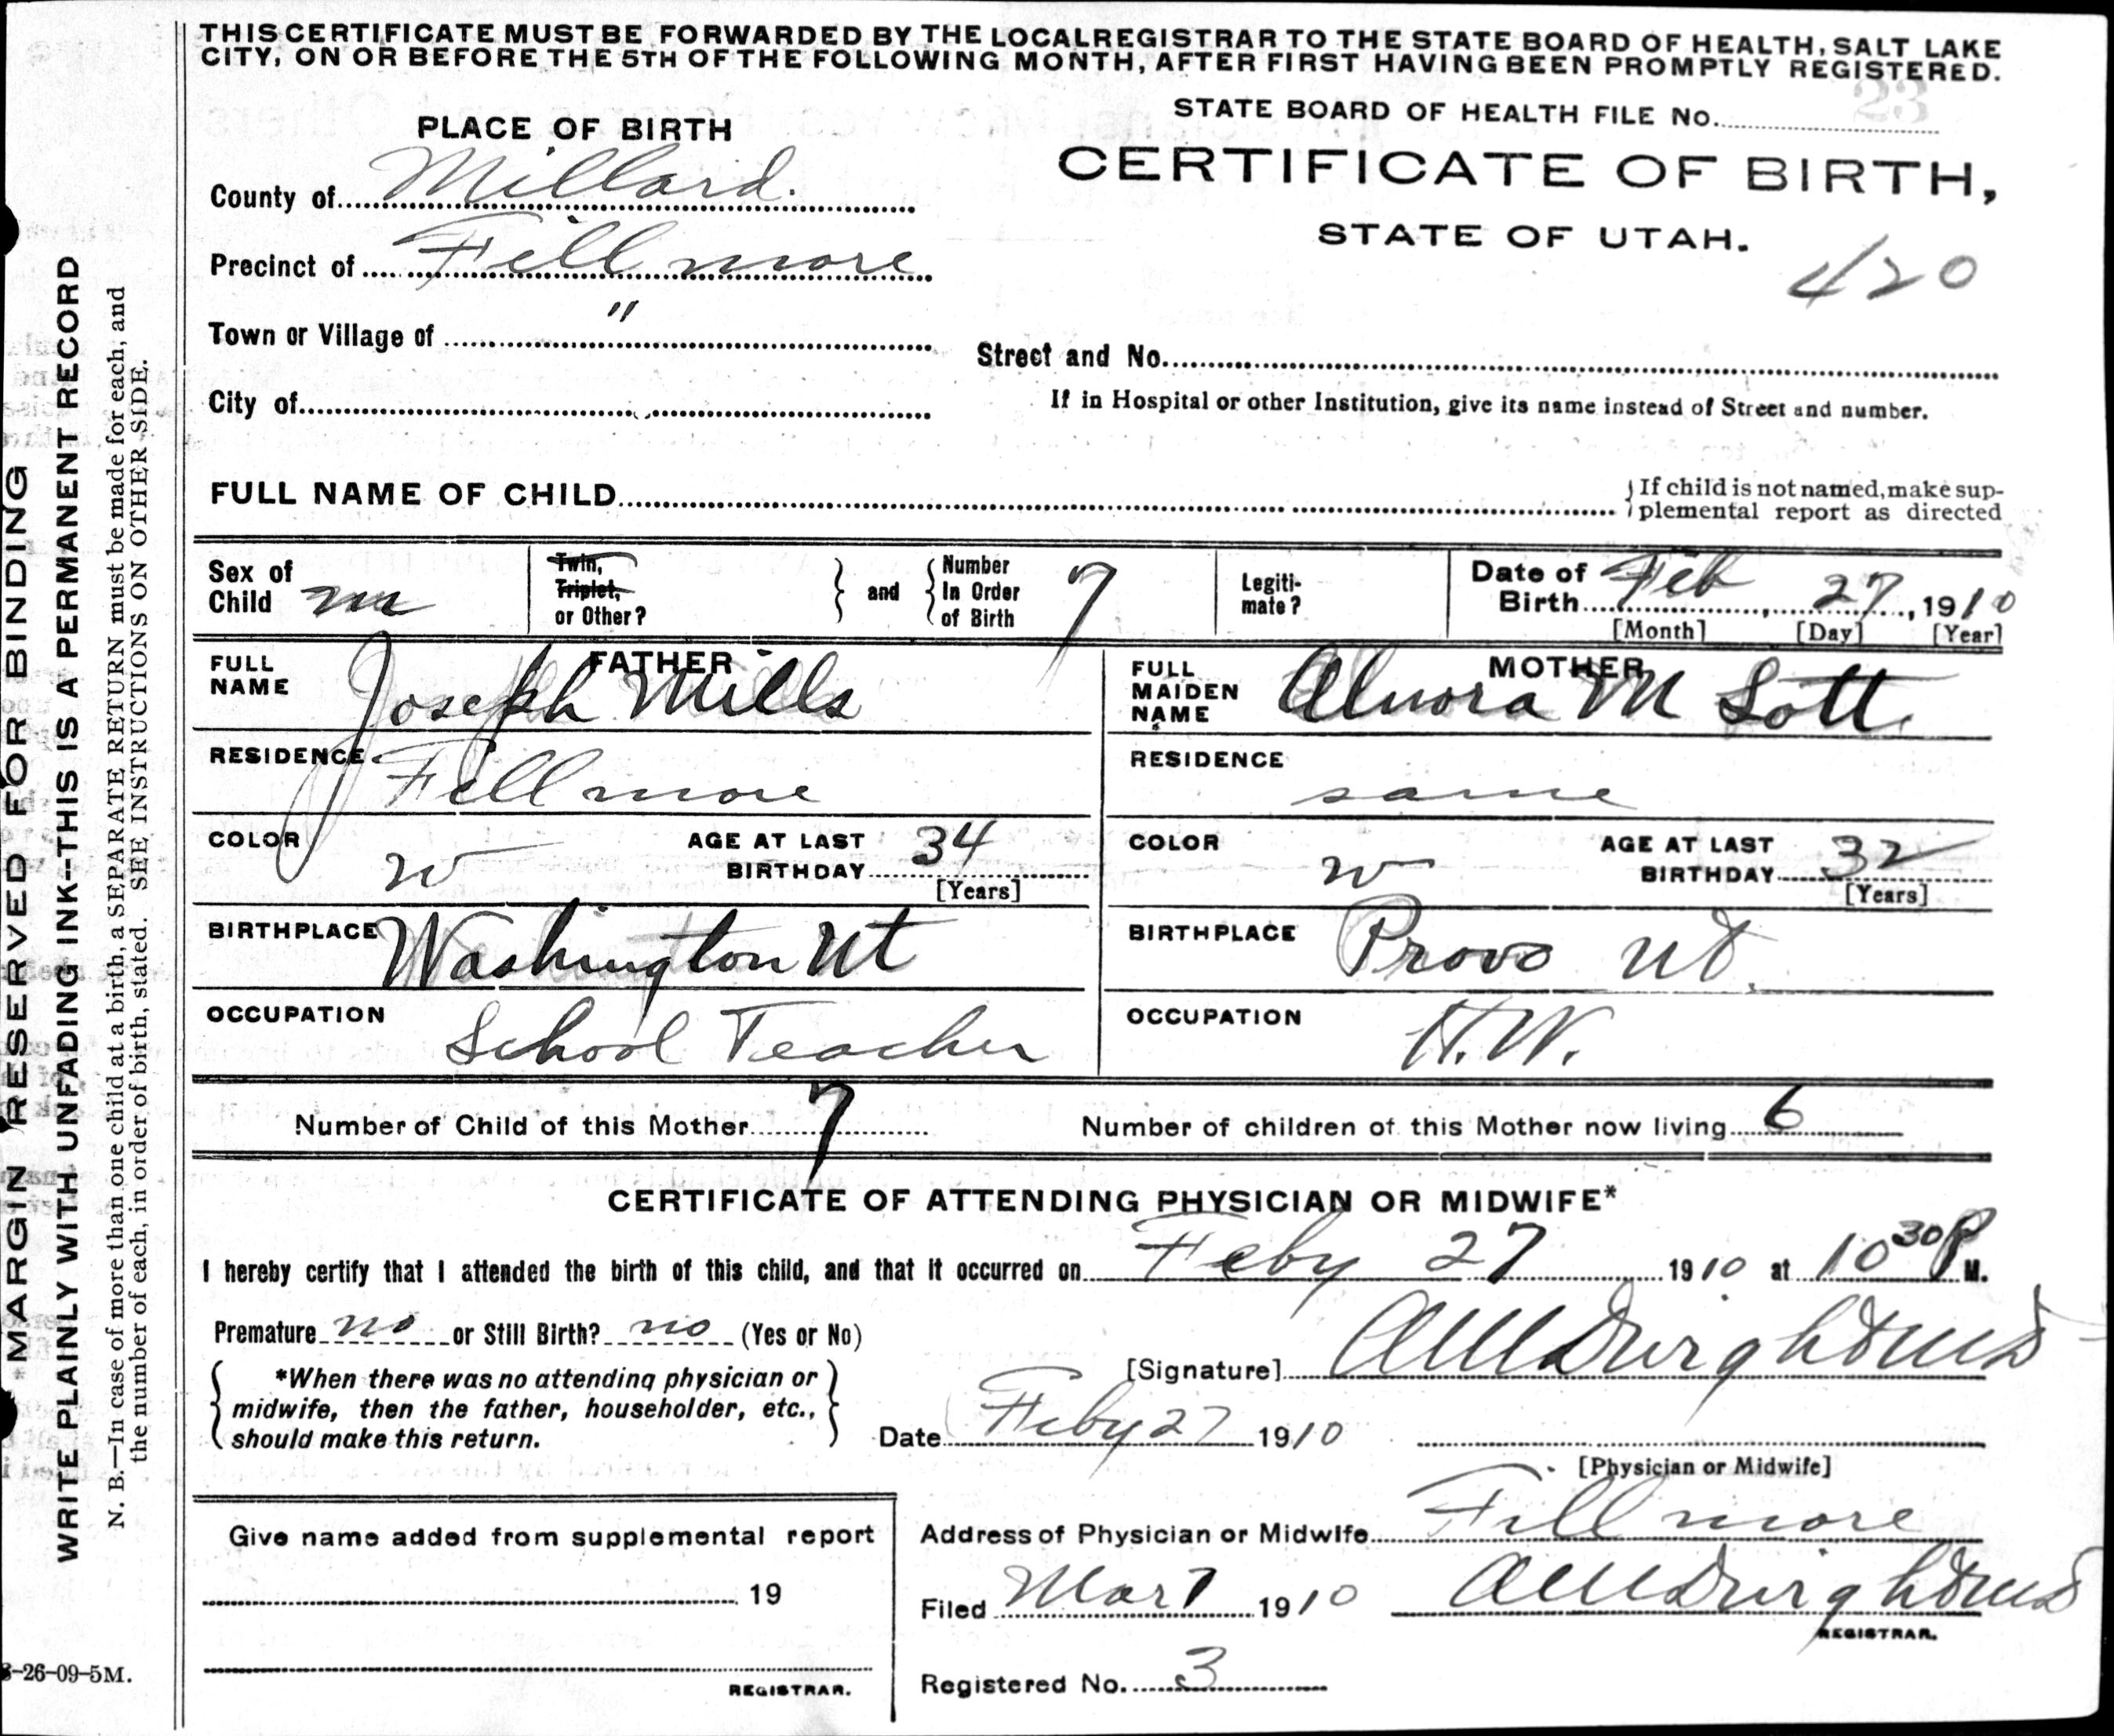 THIS CERTIFICATE MUST BE FORWARDED BY THE LOCAL REGISTRAR TO THE STATE BOARD OF HEALTH, SALT LAKE
CITY, ON OR BEFORE THE 5TH OF THE FOLLOWING MONTH, AFTER FIRST HAVING BEEN PROMPTLY REGISTERED.
STATE BOARD OF HEALTH FILE No. 23
PLACE OF BIRTH
CERTIFICATE OF BIRTH,
STATE OF UTAH.
420
County of Millard.
Precinct of Fillmore
Town or Village of "
Street and No.
City of
If in Hospital or other Institution, give its name instead of Street and number.
FULL NAME OF CHILD
If child is not named, make sup-
plemental report as directed
Sex of
Child m
Twin,
Triplet,
or Other?
and
Number
In Order
of Birth 7
Legiti-
mate?
Date of
Birth Feb 27, 1910
[Month] [Day] [Year]
FATHER
FULL
NAME Joseph Mills
MOTHER
FULL
MAIDEN
NAME M Lott
RESIDENCE Fillmore
RESIDENCE same
COLOR w
AGE AT LAST
BIRTHDAY 34
[Years]
COLOR w
AGE AT LAST
BIRTHDAY 32
[Years]
BIRTHPLACE Washington Ut
BIRTHPLACE Provo Ut.
OCCUPATION School Teacher
OCCUPATION H.W.
Number of Child of this Mother 7
Number of children of this Mother now living 6
CERTIFICATE OF ATTENDING PHYSICIAN OR MIDWIFE*
I hereby certify that I attended the birth of this child, and that it occurred on Feby 27 1910 at 10 30 P M.
Premature no or Still Birth? no (Yes or No)
[Signature]
*When there was no attending physician or
midwife, then the father, householder, etc.,
should make this return.
Date Feby 27 1910
[Physician or Midwife]
Give name added from supplemental report
19
REGISTRAR.
Address of Physician or Midwife Fillmore
Filed Mar 7 1910
REGISTRAR.
Registered No. 3
MARGIN RESERVED FOR BINDING
WRITE PLAINLY WITH UNFADING INK--THIS IS A PERMANENT RECORD
N. B.—In case of more than one child at a birth, a SEPARATE RETURN must be made for each, and
the number of each, in order of birth, stated. SEE INSTRUCTIONS ON OTHER SIDE.
-26-09-5M.